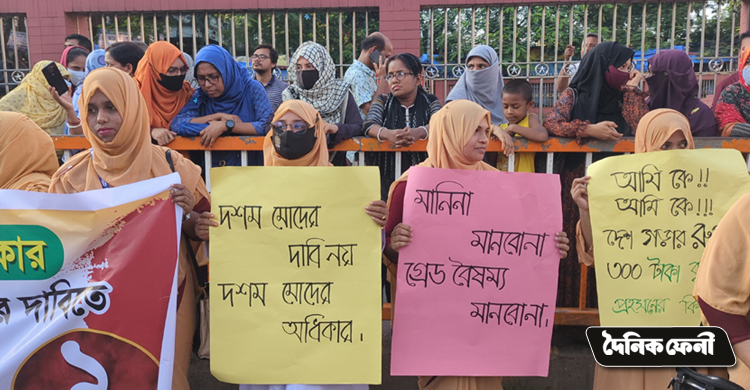 কার
র দাবিতে
১
দশম মোদের
দাবি নয়
দশম মোদের
অধিকার.
মানিনা
মানবোনা
গ্রেড বৈষম্য
মানবোনা.
আমি কে!!
আমি কে!!!
দেশ গড়ার
৩০০ টাকা
দৈনিক ফেনী